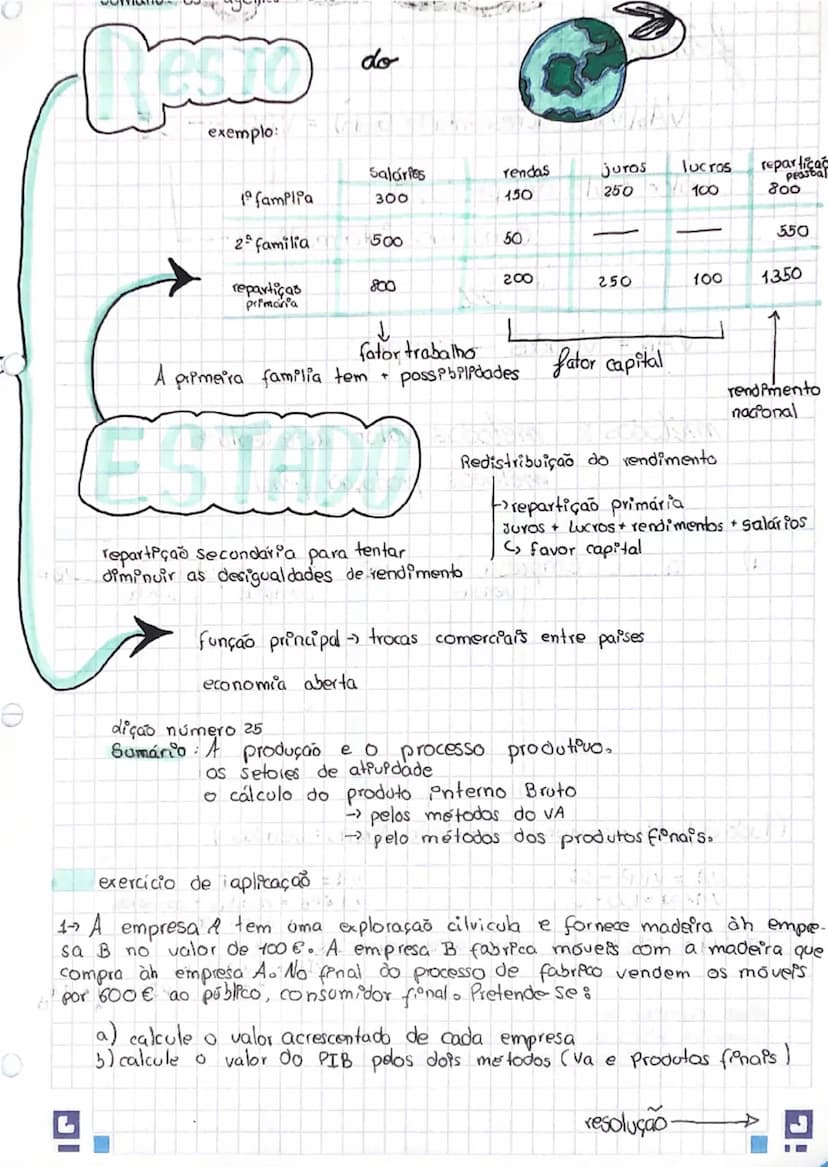 Resto do
exemplo:
salários rendas juros lucros repartição pessoal
1ª família 300 150 250 100 800
2ª família 500 50 — — 550
repartição primária 800 200 250 100 1350
fator trabalho
fator capital
A primeira família tem + possibilidades
rendimento
nacional
ESTADO
Redistribuição do rendimento
→ repartição primária
Juros + Lucros + rendimentos + salários
↳ favor capital
repartição secondária para tentar
diminuir as desigualdades de rendimento
função principal → trocas comerciais entre países
economia aberta
dição número 25
Sumário: A produção e o processo produtivo.
os setores de atividade
o cálculo do produto interno Bruto
→ pelos métodos do VA
→ pelo métodos dos produtos finais.
exercício de iaplicação
1→ A empresa A tem uma exploração cilvicula e fornece madeira àh empre-
sa B no valor de 100€. A empresa B fabrica móveis com a madeira que
compra àh empresa A. No final do processo de fabrico vendem os móveis
por 600€ ao público, consumidor final. Pretende-se:
a) calcule o valor acrescentado de cada empresa
b) calcule o valor do PIB pelos dois metodos (Va e Produtos finais)
resolução →